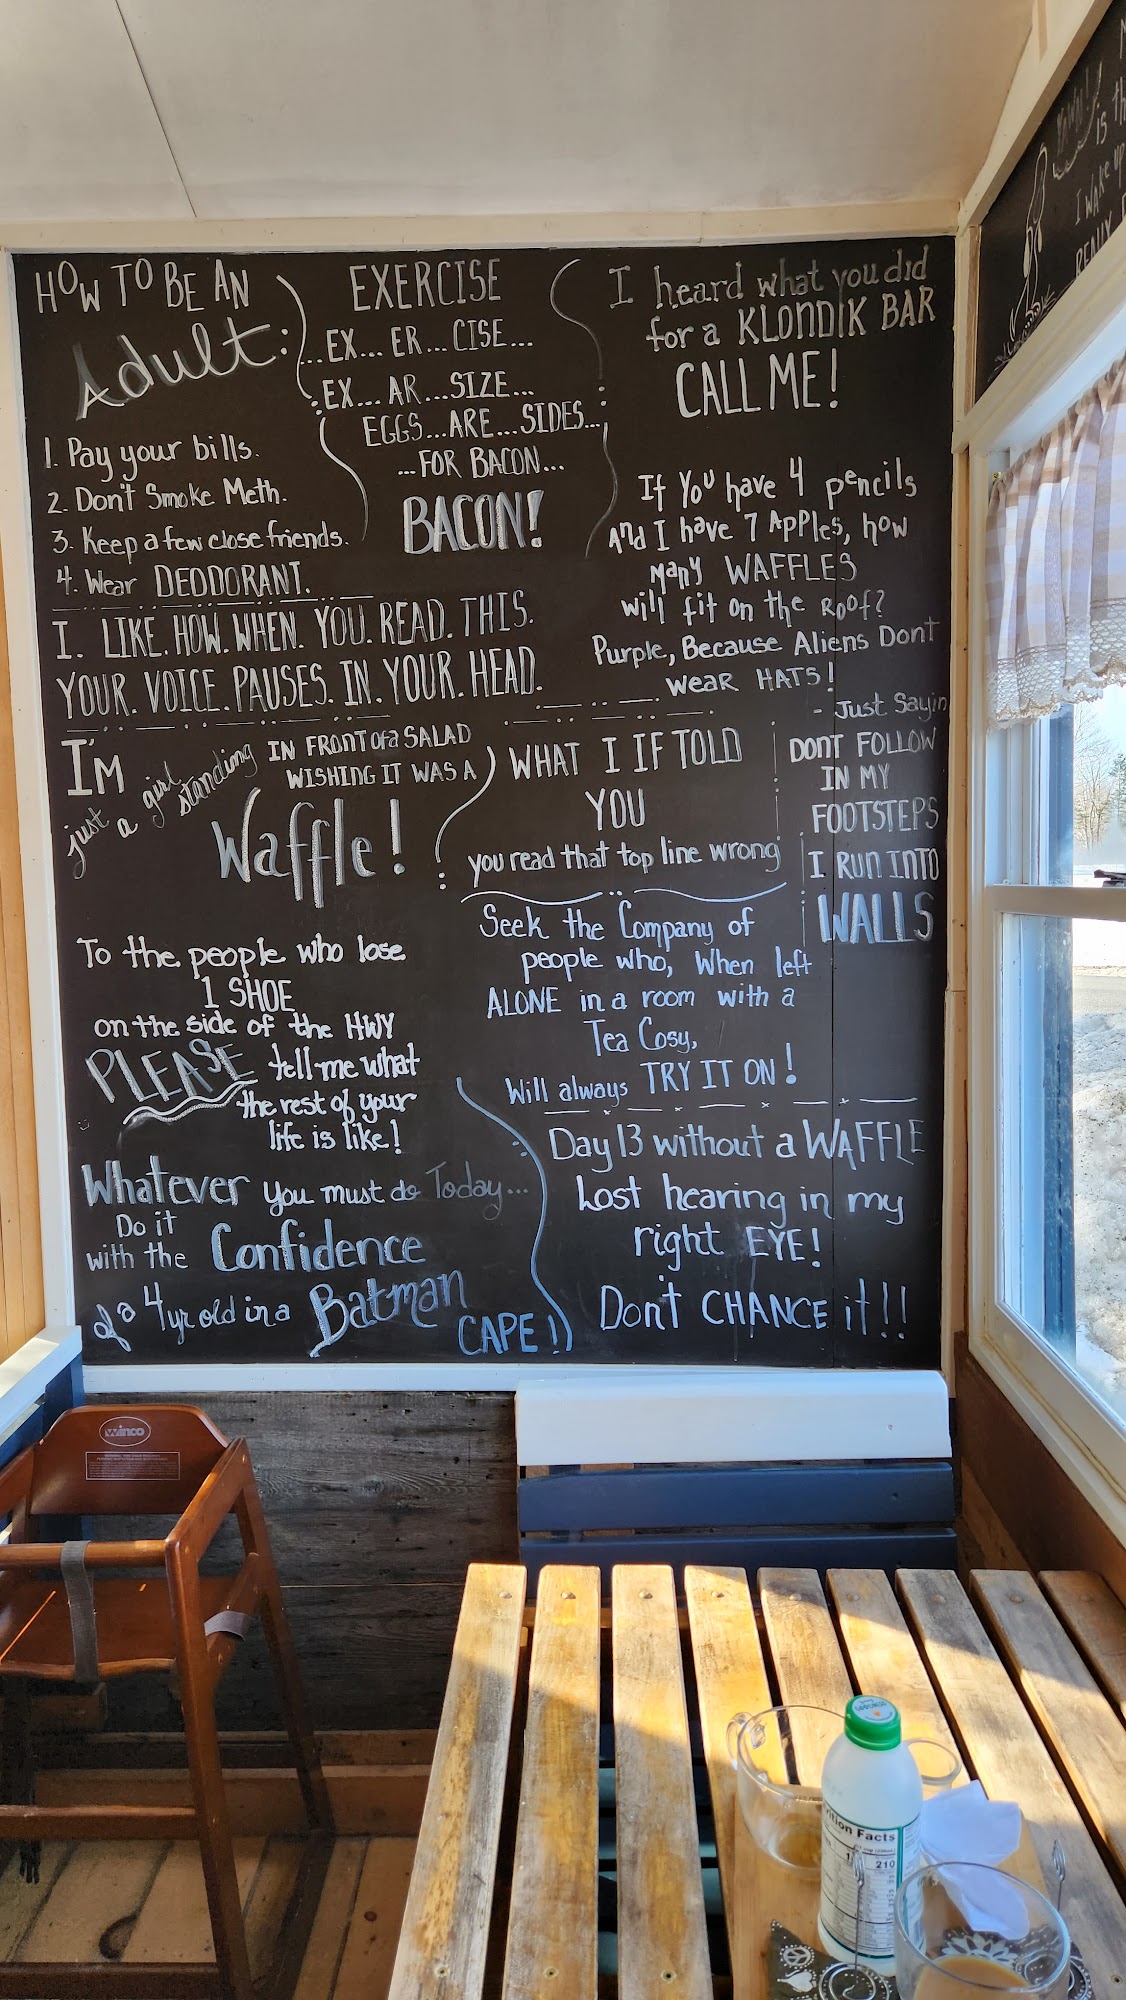 HOW TO BE AN
Adult:
1. Pay your bills.
2. Don't Smoke Meth.
3. Keep a few close friends.
4. Wear DEODORANT.
EXERCISE
...EX... ER... CISE...
EX... AR...SIZE...
EGGS...ARE...SIDES...
...FOR BACON...
BACON!
I heard what you did
for a KLONDIK BAR
CALL ME!
If You have 4 pencils
And I have 7 Apples, how
many WAFFLES
will fit on the Roof?
Purple, Because Aliens Dont
wear HATS!
- Just Sayin
I. LIKE. HOW. WHEN. YOU. READ. THIS.
YOUR. VOICE. PAUSES. IN. YOUR. HEAD.
I'M
just a girl standing IN FRONT of a SALAD
WISHING IT WAS A
Waffle!
WHAT I IF TOLD
YOU
you read that top line wrong
DONT FOLLOW
IN MY
FOOTSTEPS
I RUN INTO
WALLS
To the people who lose
1 SHOE
on the side of the HWY
PLEASE tell me what
the rest of your
life is like!
Seek the Company of
people who, When left
ALONE in a room with a
Tea Cosy,
Will always TRY IT ON!
Whatever you must do Today...
Do it
with the Confidence
of a 4 yr old in a Batman
CAPE!
Day 13 without a WAFFLE
Lost hearing in my
right EYE!
Don't CHANCE it!!
is th
I wake up
REALLY
winco
Nutrition Facts
210